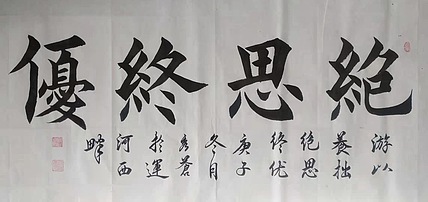 絕思終優
游以
養拙
絕思
終优
庚子
冬月
蒼
於運
河西
畔